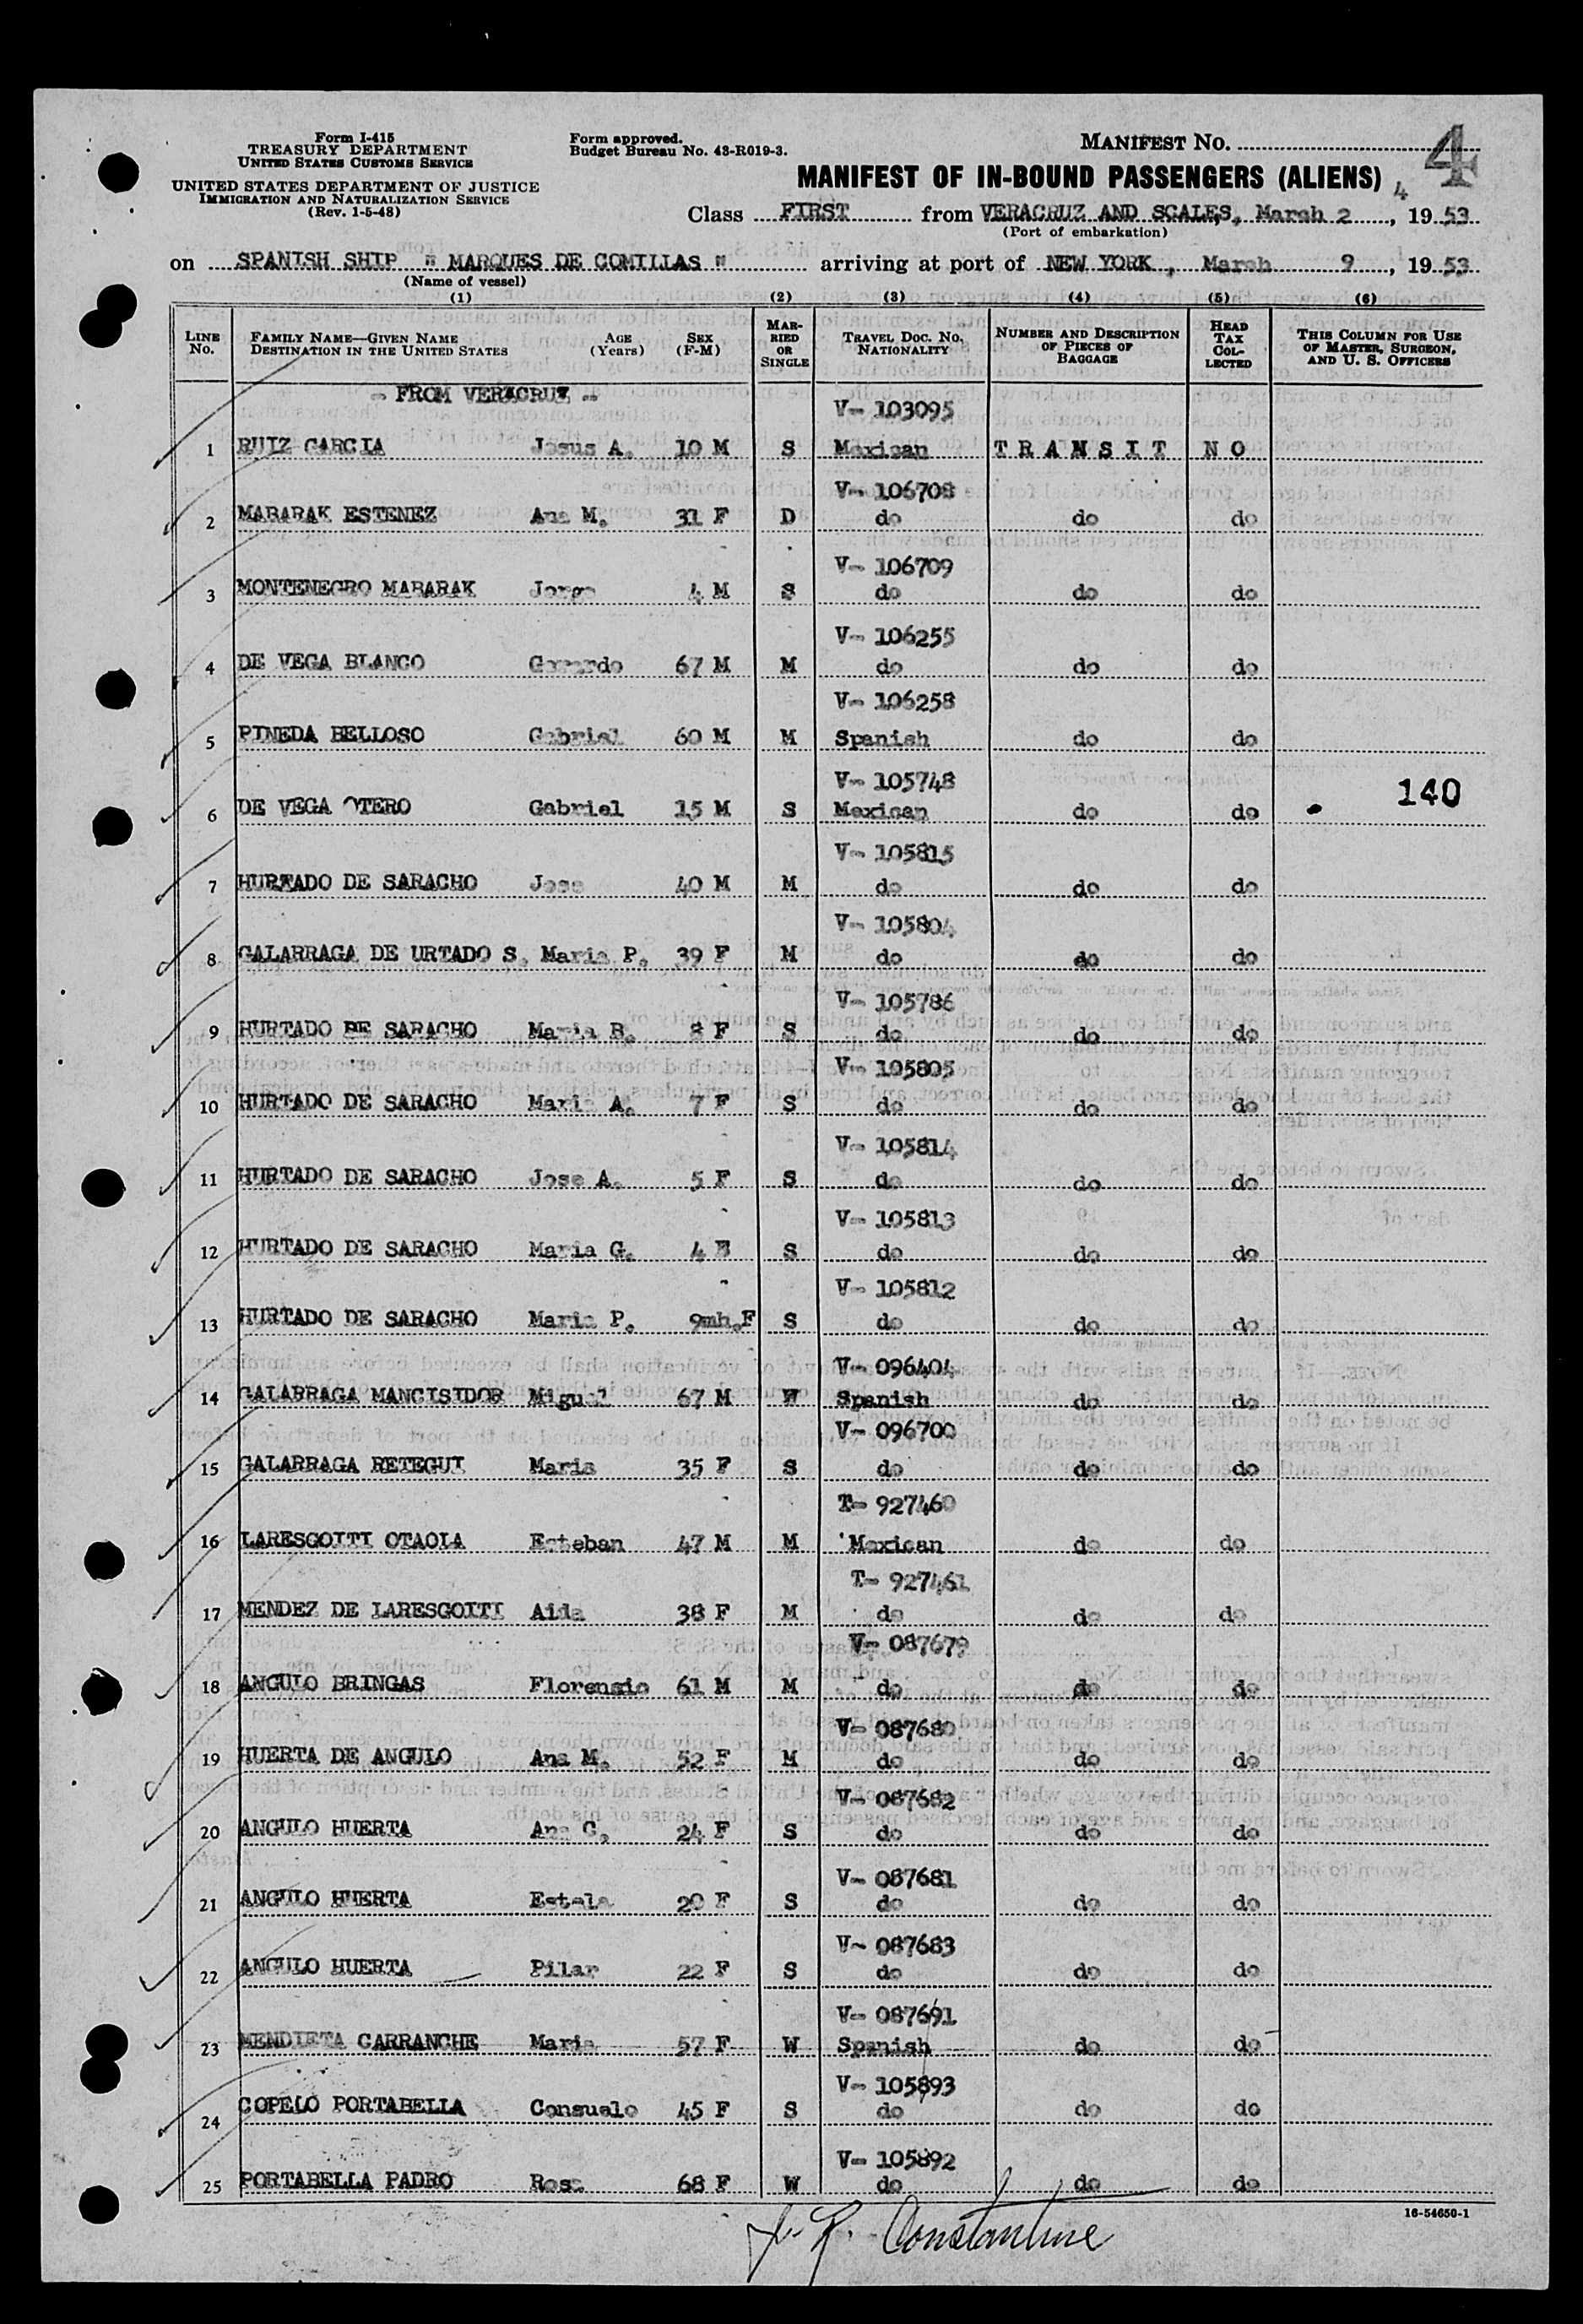 Form I-415
TREASURY DEPARTMENT
UNITED STATES CUSTOMS SERVICE
UNITED STATES DEPARTMENT OF JUSTICE
IMMIGRATION AND NATURALIZATION SERVICE
(Rev. 1-5-48)
Form approved.
Budget Bureau No. 43-R019-3.
MANIFEST NO.
4
MANIFEST OF IN-BOUND PASSENGERS (ALIENS) 4
Class FIRST from VERACRUZ AND SCALES, March 2, 1953
(Port of embarkation)
on SPANISH SHIP " MARQUES DE COMILLAS " arriving at port of NEW YORK, March 9, 1953
(Name of vessel)
(1) (2) (3) (4) (5) (6)
LINE NO. FAMILY NAME—GIVEN NAME DESTINATION IN THE UNITED STATES AGE (Years) SEX (F-M) MARRIED OR SINGLE TRAVEL DOC. NO. NATIONALITY NUMBER AND DESCRIPTION OF PIECES OF BAGGAGE HEAD TAX COLLECTED THIS COLUMN FOR USE OF MASTER, SURGEON, AND U. S. OFFICERS
- FROM VERACRUZ -
V- 103095
1 RUIZ GARCIA Jesus A. 10 M S Mexican TRANSIT NO
V- 106708
2 MABARAK ESTENEZ Ana M. 31 F D do do do
V- 106709
3 MONTENEGRO MABARAK Jorge 4 M S do do do
V- 106255
4 DE VEGA BLANCO Gerardo 67 M M do do do
V- 106258
5 PINEDA BELLOSO Gabriel 60 M M Spanish do do
V- 105748
6 DE VEGA OTERO Gabriel 15 M S Mexican do do 140
V- 105815
7 HURTADO DE SARACHO Jose 40 M M do do do
V- 105804
8 GALARRAGA DE URTADO S. Maria P. 39 F M do do do
V- 105786
9 HURTADO DE SARACHO Maria B. 8 F S do do do
V- 105805
10 HURTADO DE SARACHO Maria A. 7 F S do do do
V- 105814
11 HURTADO DE SARACHO Jose A. 5 F S do do do
V- 105813
12 HURTADO DE SARACHO Maria G. 4 F S do do do
V- 105812
13 HURTADO DE SARACHO Maria P. 9mh.F S do do do
V- 096404
14 GALARRAGA MANCISIDOR Migual 67 M W Spanish do do
V- 096700
15 GALARRAGA RETEGUI Maria 35 F S do do do
T- 927460
16 LARESGOITI OTAOLA Esteban 47 M M Mexican do do
T- 927461
17 MENDEZ DE LARESGOITI Aida 38 F M do do do
V- 087679
18 ANGULO BRINGAS Florensio 61 M M do do do
V- 087680
19 HUERTA DE ANGULO Ana M. 52 F M do do do
V- 087682
20 ANGULO HUERTA Ana C. 24 F S do do do
V- 087681
21 ANGULO HUERTA Estela 20 F S do do do
V- 087683
22 ANGULO HUERTA Pilar 22 F S do do do
V- 087691
23 MENDIETA CARRANCHE Maria 57 F W Spanish do do
V- 105893
24 COPELO PORTABELLA Consuelo 45 F S do do do
V- 105892
25 PORTABELLA PADRO Rosa 68 F W do do do
16-54650-1
R. Constantine